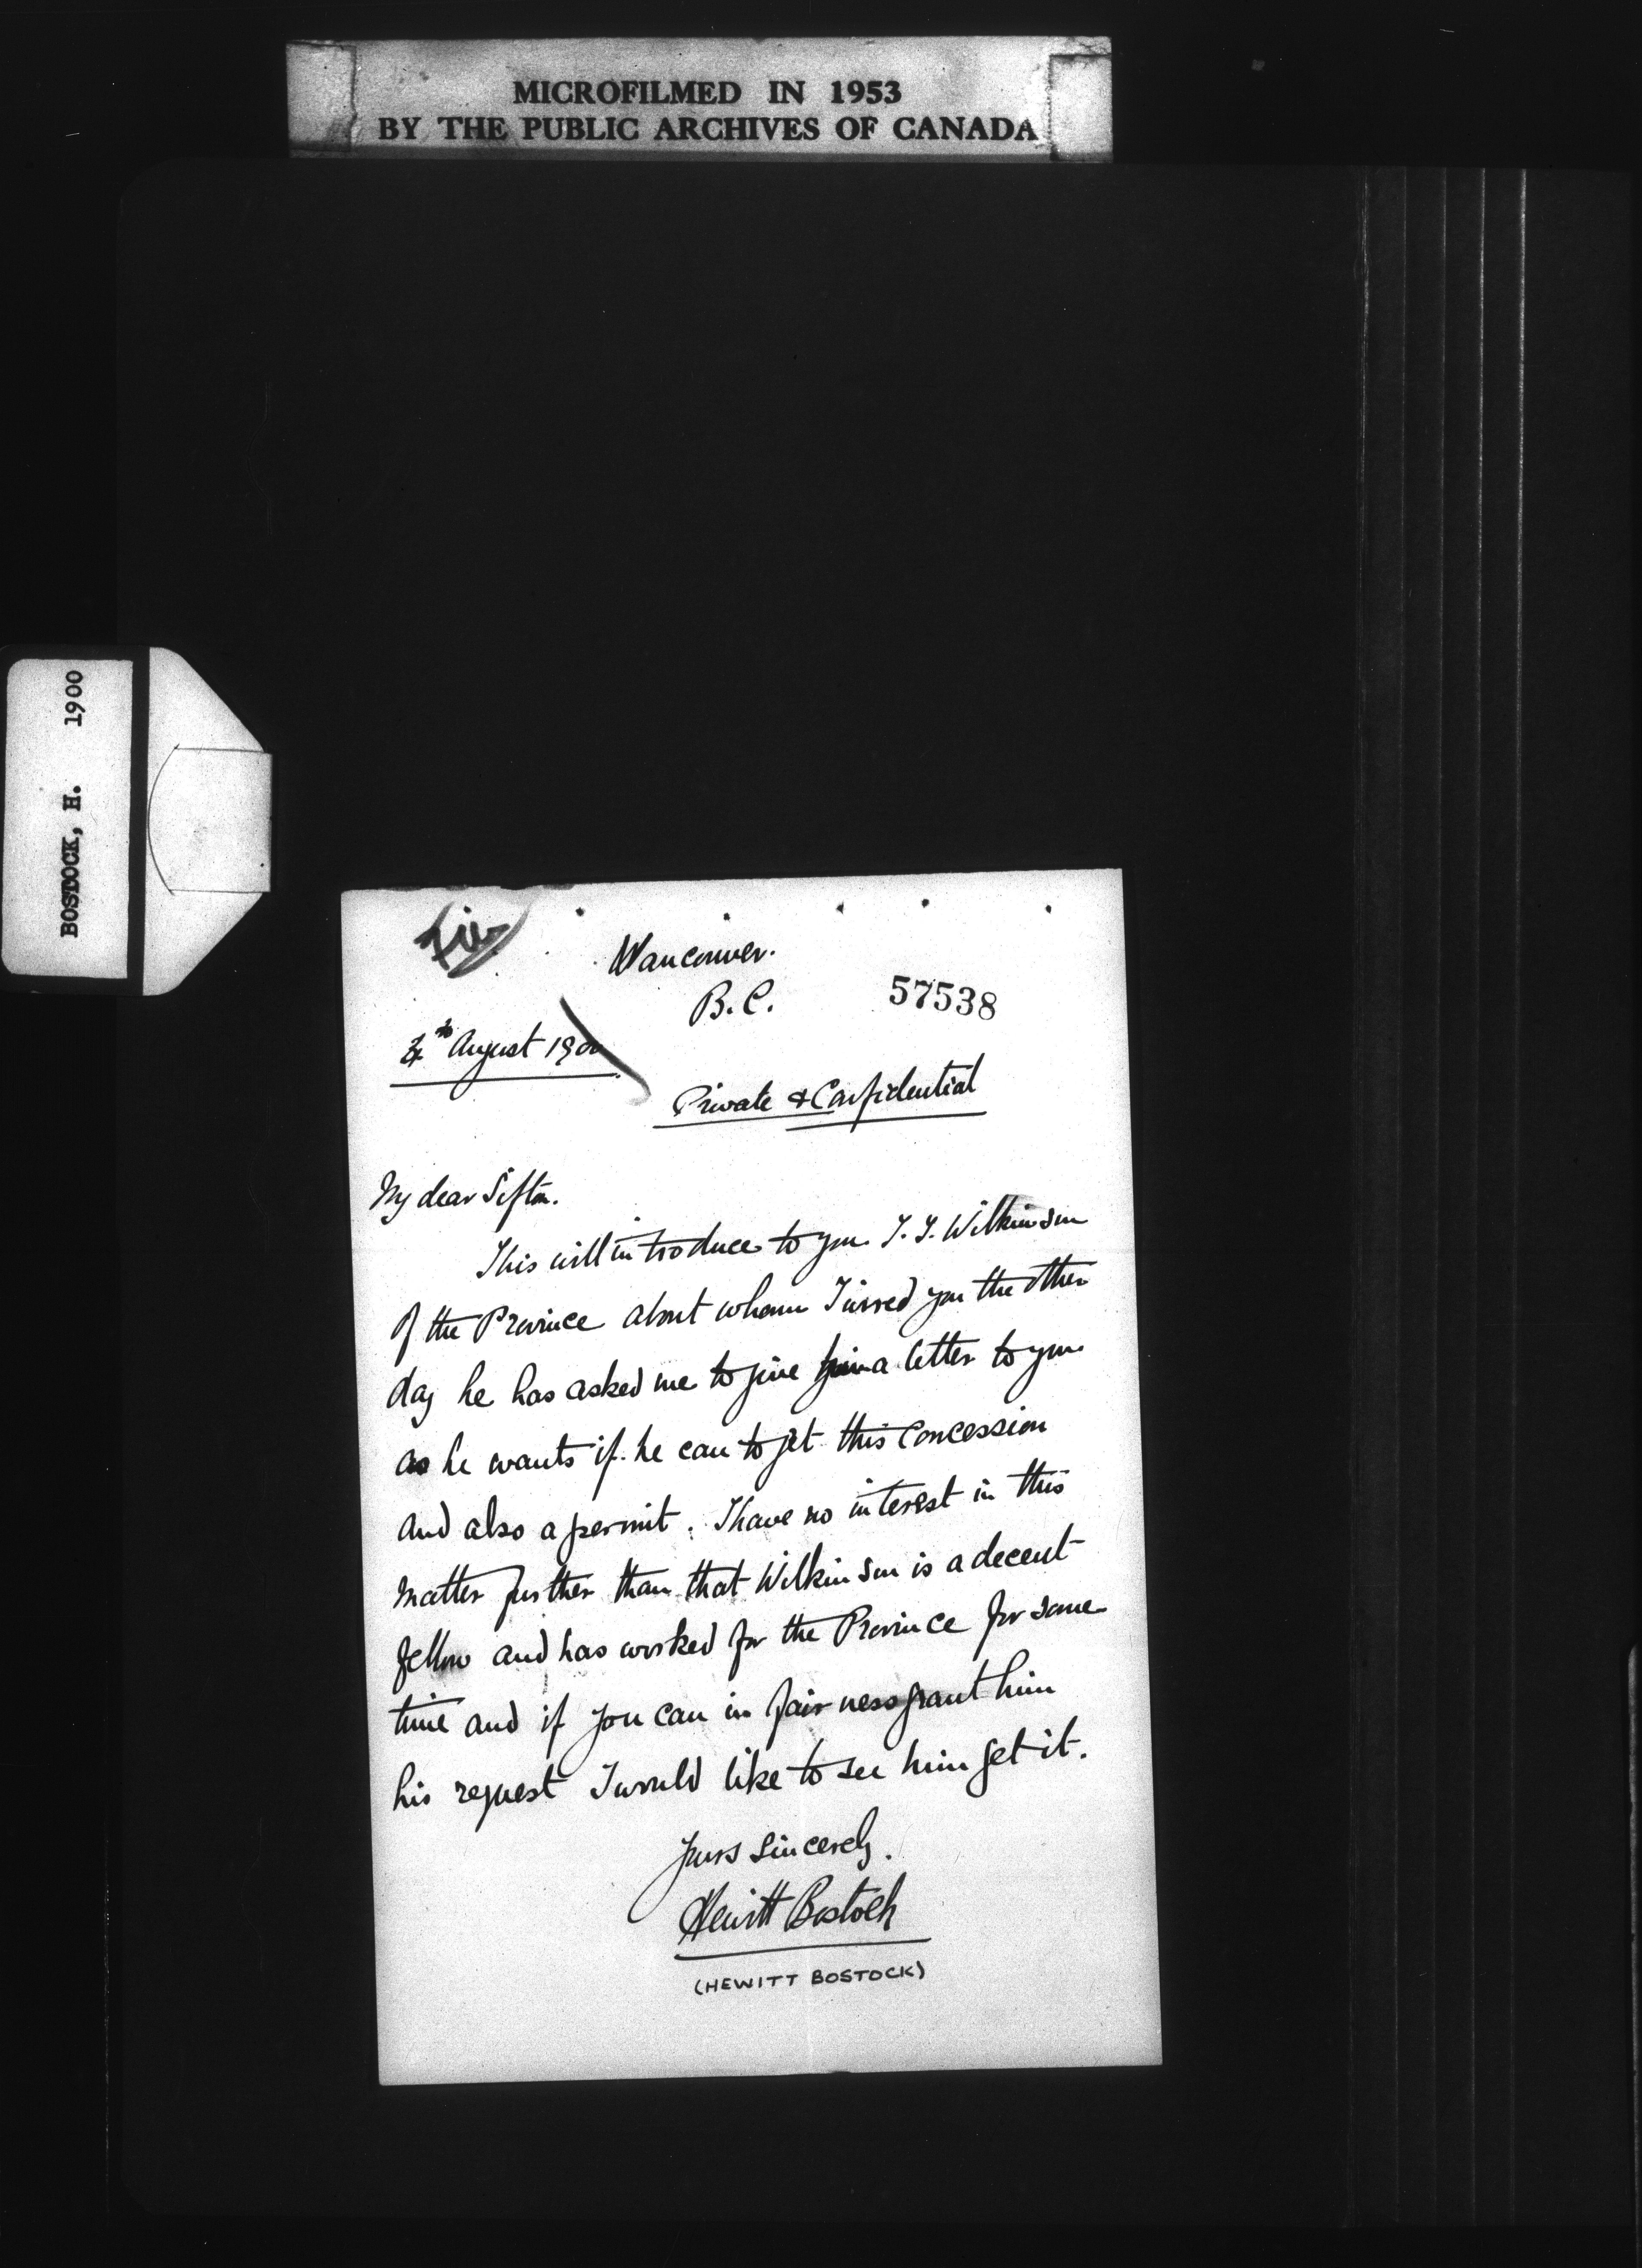 MICROFILMED IN 1953
BY THE PUBLIC ARCHIVES OF CANADA
BOSTOCK, H. 1900
Vancouver.
B.C.
57538
4th August 1900
Private & Confidential
My dear Sifton.
This will introduce to you Wilkinson
of the Province about whom I wired you the other
day he has asked me to give him a letter to you
as he wants if he can to get this concession
and also a permit. I have no interest in this
matter further than that Wilkinson is a decent
fellow and has worked for the Province for some
time and if you can in fairness grant him
his request I would like to see him get it.
Yours sincerely.
Hewitt Bostock
(HEWITT BOSTOCK)